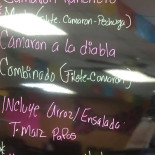 Camaron Ranchero
(Filete. Camaron-Pechuga)
Camaron a la diabla
Combinado (Filete-Camaron)
INcluye Arroz/Ensalada
Tomar Papas